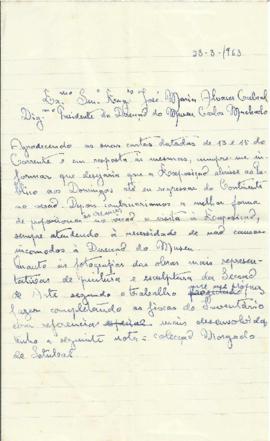 23-3-/963
Ex.mo Snr. Eng.º José Maria Alvares Cabral
Dig.mo Presidente da Direcção do Museu Carlos Machado
Agradecendo as suas cartas datadas de 13 e 15 do
Corrente e em resposta às mesmas, cumpre-me in-
formar que desejaria que a Exposição
aos Domingos até eu regressar do Continente
a melhor forma
de a visita à Exposição,
sempre atendendo à necessidade de não causar
incomodos à Direcção do Museu.
Quanto às fotografias das obras mais represen-
tativas de pintura e escultura da Secção
de Arte segundo o trabalho que me propuz
fazer completando as fichas do Inventário
com referencia mais desenvolvida,
tenho a seguinte nota = colecção Morgado
de Setubal